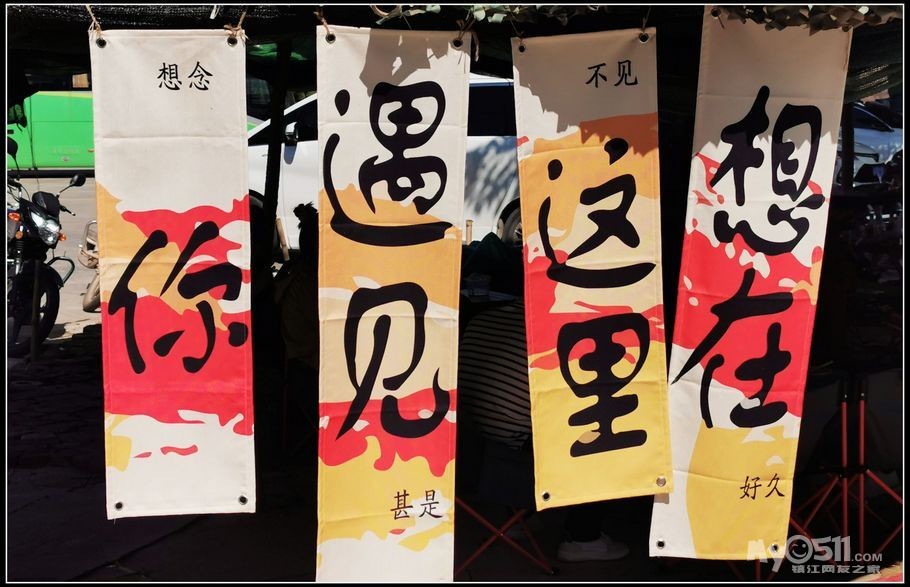 想在
好久
不见
这里
遇见
甚是
想念
你
MY0511.COM
镇江网友之家